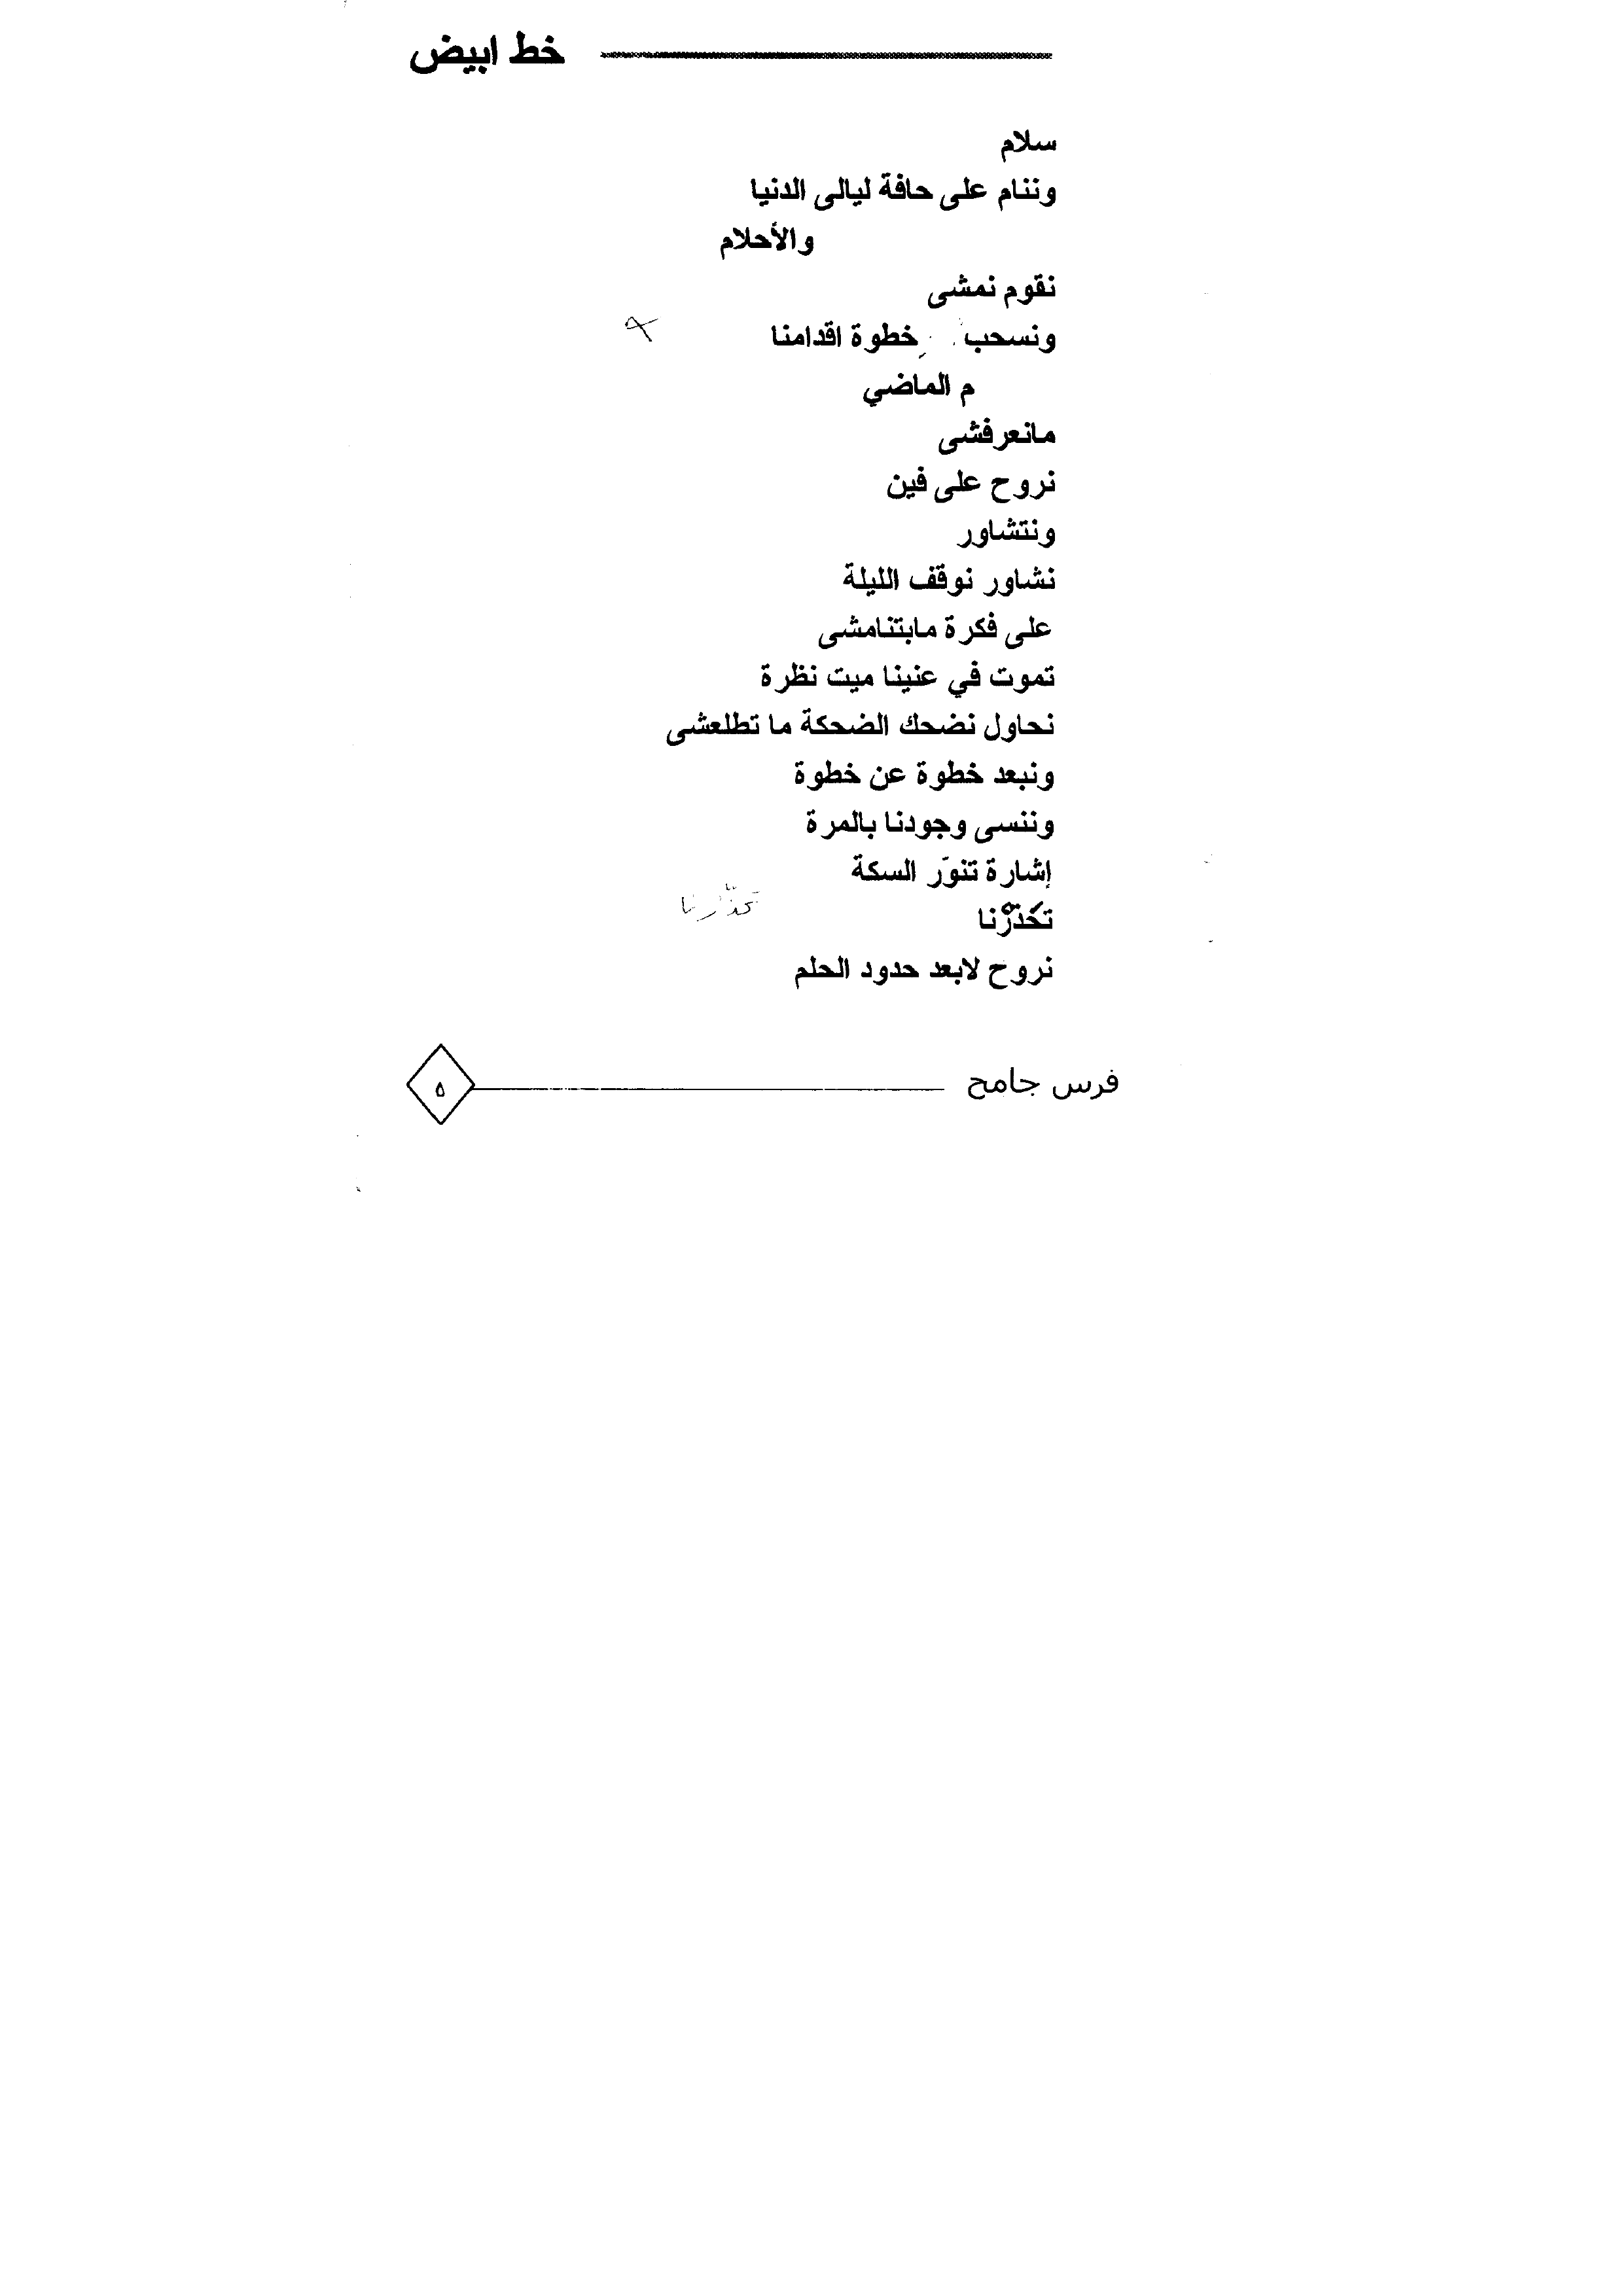 خط ابيض
سلام
وننام على حافة ليالى الدنيا
والأحلام
نقوم نمشى
ونسحب خطوة اقدامنا
م الماضي
مانعرفشى
نروح على فين
ونتشاور
نشاور نوقف الليلة
على فكرة مابتنامشى
تموت في عنينا ميت نظرة
نحاول نضحك الضحكة ما تطلعشى
ونبعد خطوة عن خطوة
وننسى وجودنا بالمرة
إشارة تنوّر السكة
تحذّرنا
تحذّرنا
نروح لابعد حدود الحلم
فرس جامح
٥